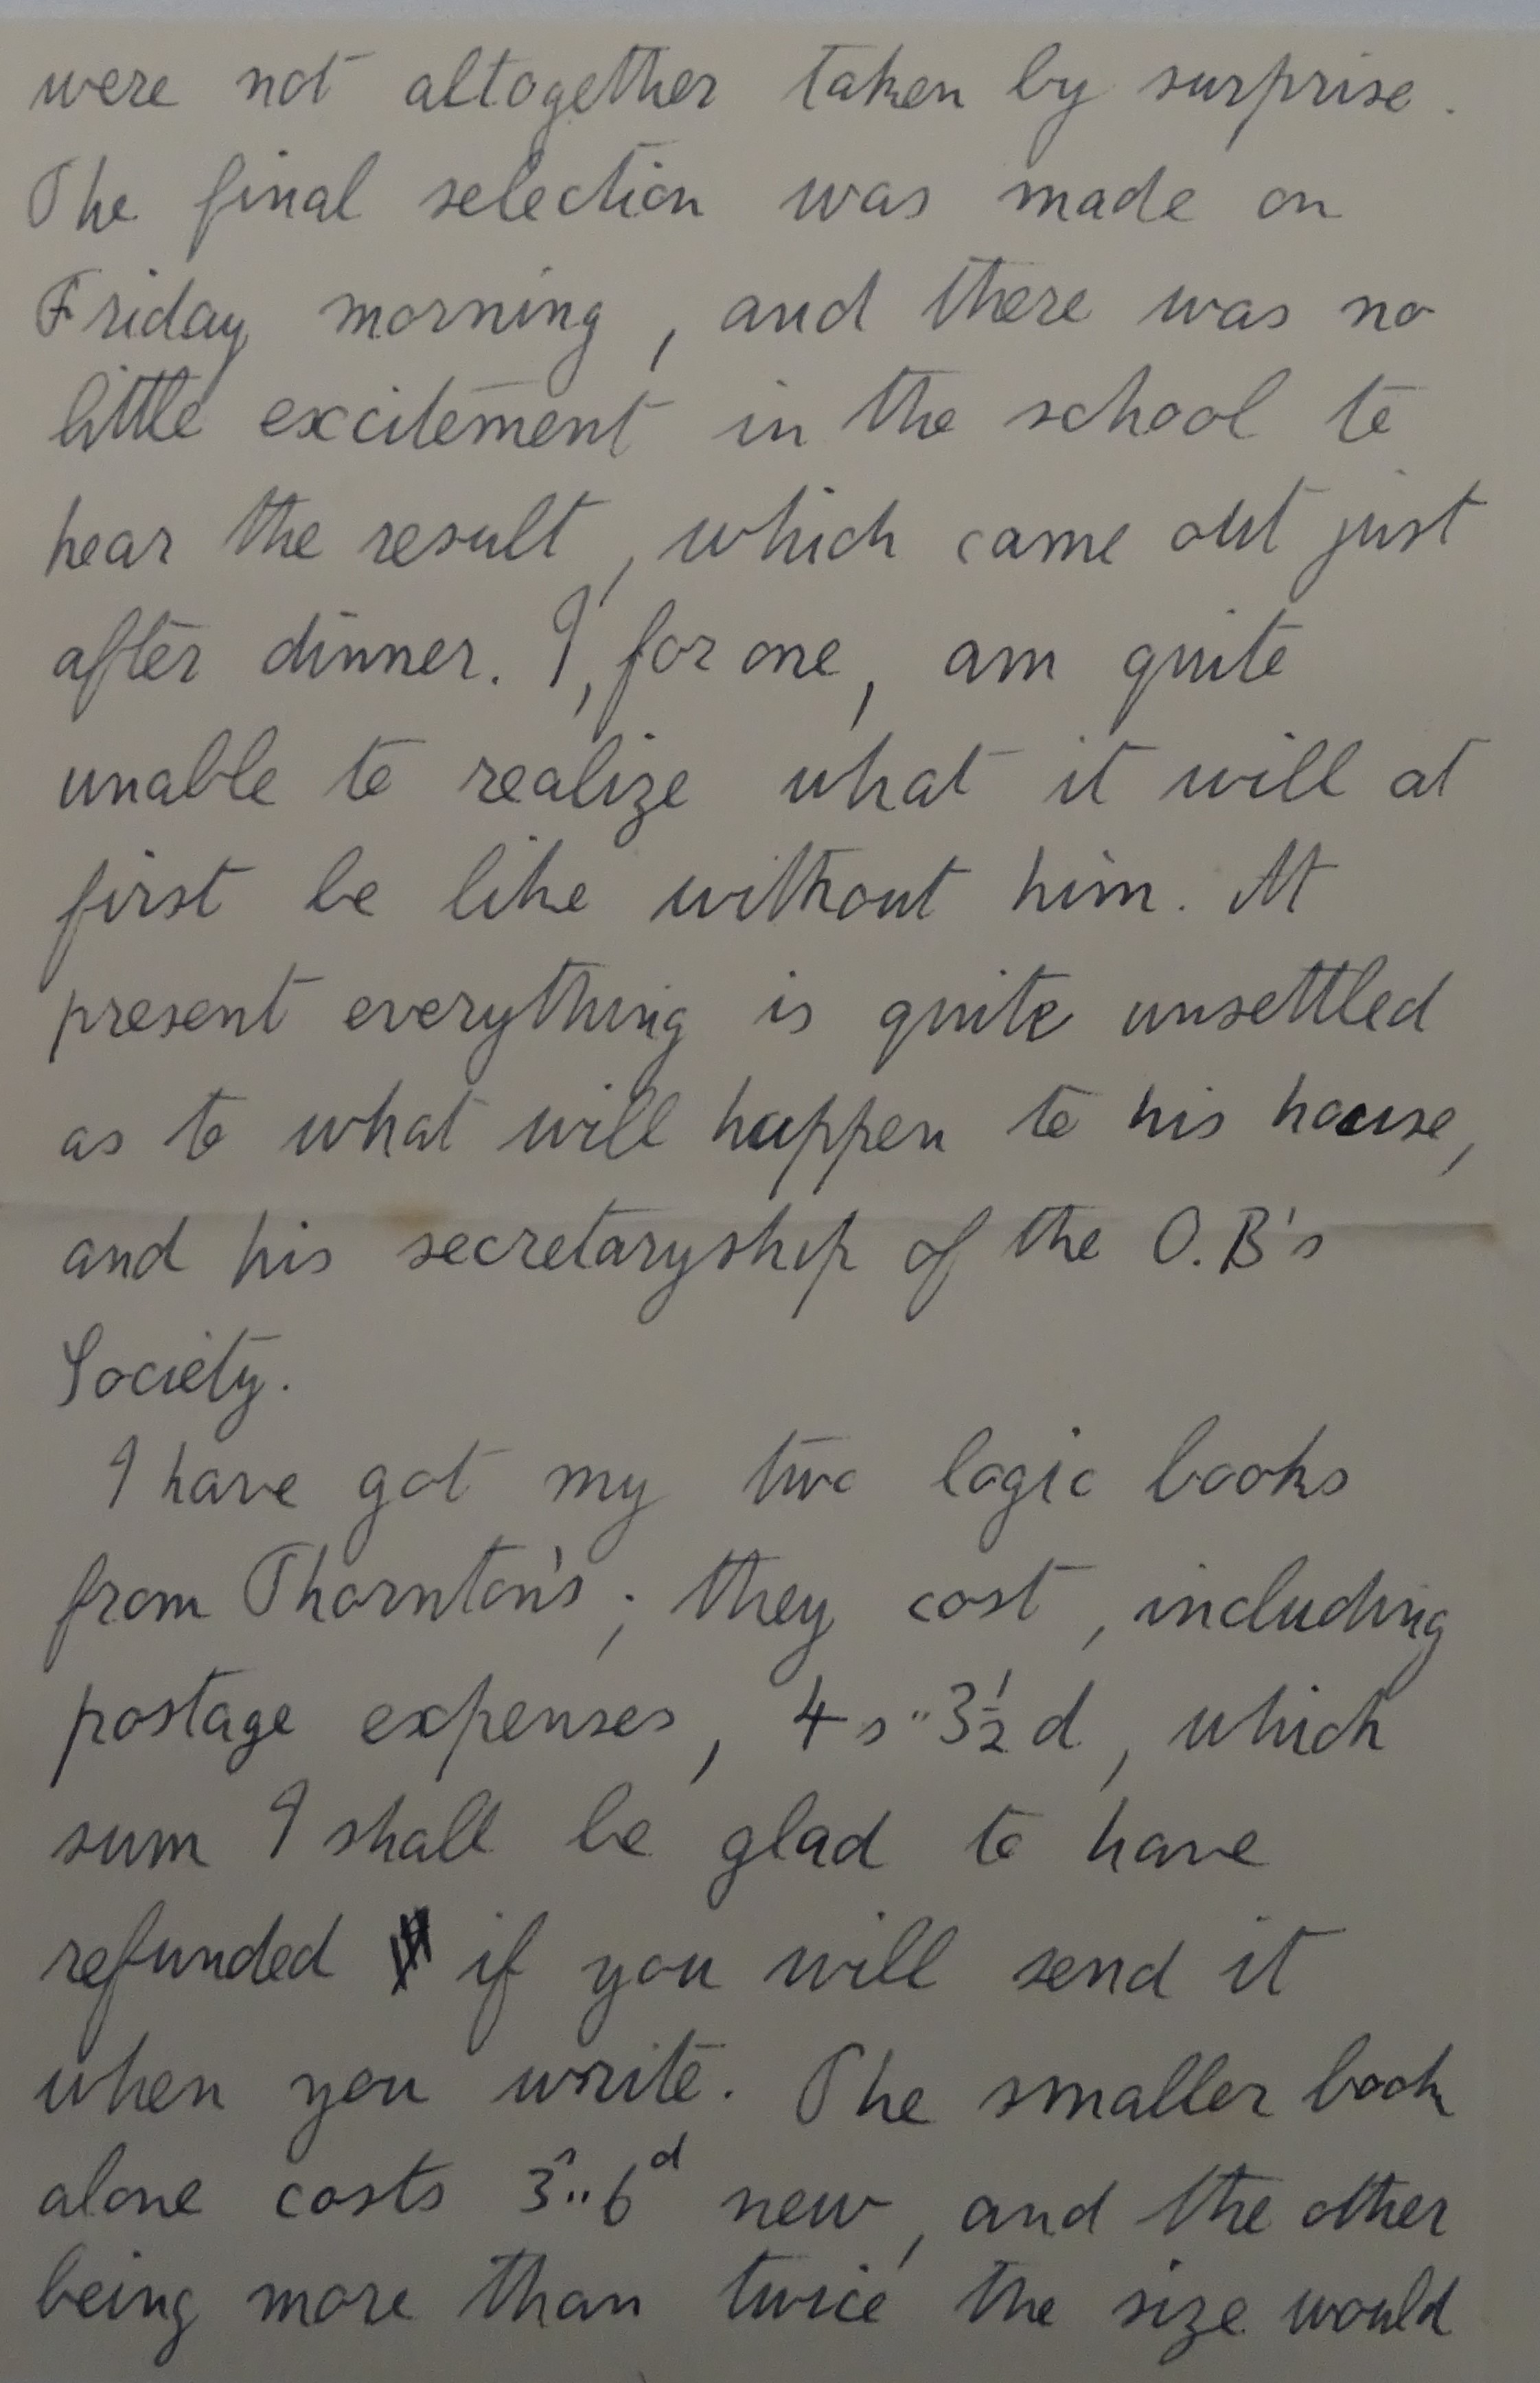 were not altogether taken by surprise.
The final selection was made on
Friday morning, and there was no
little excitement in the school to
hear the result, which came out just
after dinner. I, for one, am quite
unable to realize what it will at
first be like without him. At
present everything is quite unsettled
as to what will happen to his house,
and his secretaryship of the O.B's
Society.
I have got my two logic books
from Thornton's; they cost, including
postage expenses, 4s"3½d, which
sum I shall be glad to have
refunded if you will send it
when you write. The smaller book
alone costs 3ˢ..6ᵈ new, and the other
being more than twice the size would